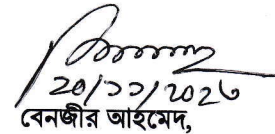 ২০/১১/২০২৩
বেনজীর আহমেদ,